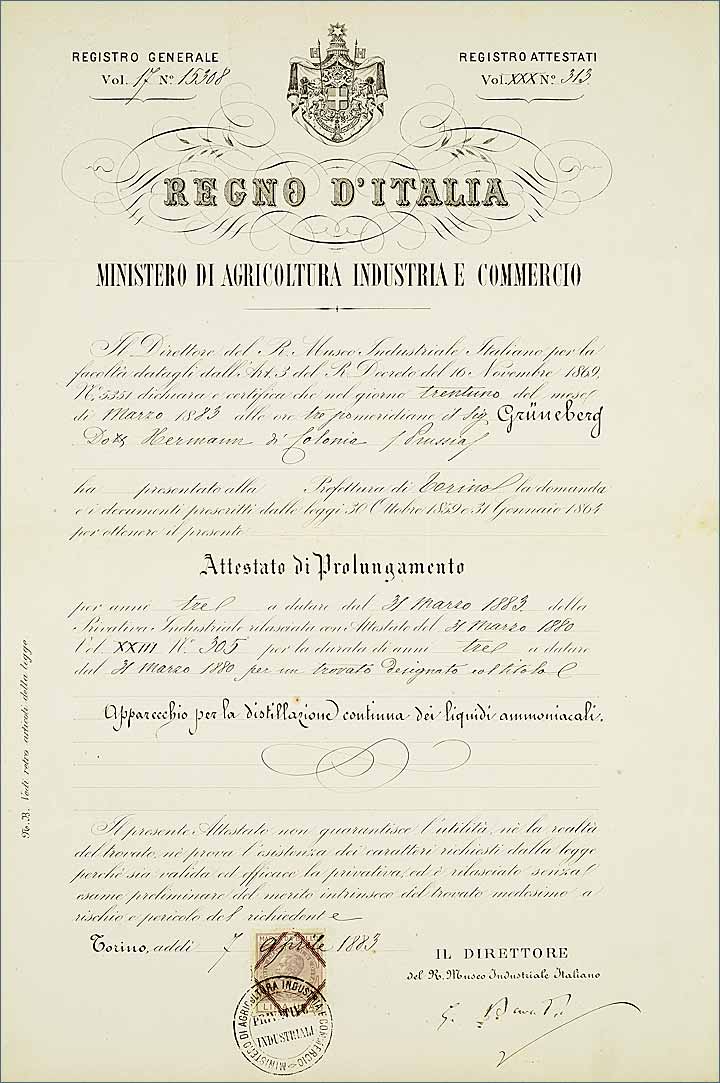 REGISTRO GENERALE
Vol. 17 Nº 15308
REGISTRO ATTESTATI
Vol. XXX Nº 313
REGNO D'ITALIA
MINISTERO DI AGRICOLTURA INDUSTRIA E COMMERCIO
Il Direttore del R. Museo Industriale Italiano per la
facoltà datagli dall'Art. 3 del R. Decreto del 16 Novembre 1869
Nº 5351 dichiara e certifica che nel giorno trentuno del mese
di Marzo 1883 alle ore tre pomeridiane il sig Grüneberg
Dott. Hermann di Colonia (Prussia)
ha presentato alla Prefettura di Torino la domanda
e i documenti prescritti dalle leggi 30 Ottobre 1859 e 31 Gennaio 1864
per ottenere il presente
Attestato di Prolungamento
per anni tre a datare dal 31 Marzo 1883 della
Privativa Industriale rilasciata con Attestato del 31 Marzo 1880
Vol. XXIII Nº 305 per la durata di anni tre a datare
dal 31 Marzo 1880 per un trovato designato col titolo
Apparecchio per la distillazione continua dei liquidi ammoniacali.
Il presente Attestato non guarantisce l'utilità, nè la realtà
del trovato, nè prova l'esistenza dei caratteri richiesti dalla legge
perchè sia valida ed efficace la privativa, ed è rilasciato senza
esame preliminare del merito intrinseco del trovato medesimo a
rischio e pericolo del richiedente
Torino, addi 7 Aprile 1883
IL DIRETTORE
del R. Museo Industriale Italiano
MINISTERO DI AGRICOLTURA INDUSTRIA E COMMERCIO
PRIVATIVE
INDUSTRIALI
N.B. Vedi retro articoli della legge